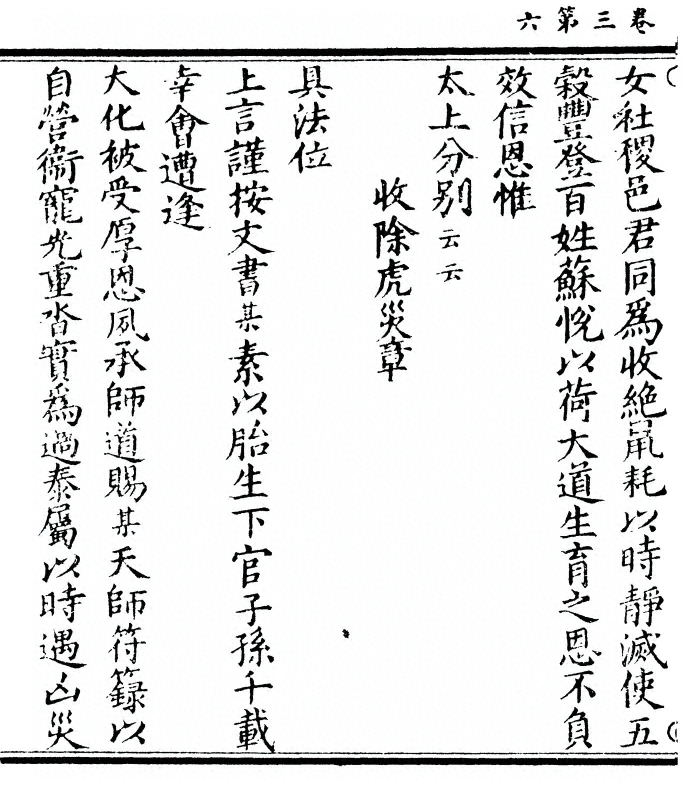 卷三第六
女社稷邑君同爲收絶鼠耗以時靜滅使五
穀豐登百姓蘇悅以荷大道生育之恩不負
效信恩惟
太上分别云云
收除虎災章
具法位
上言謹按文書某素以胎生下官子孫千載
幸會遭逢
大化被受厚恩夙承師道賜某天師符籙以
自營衞寵光重沓實爲過泰屬以時遇凶災